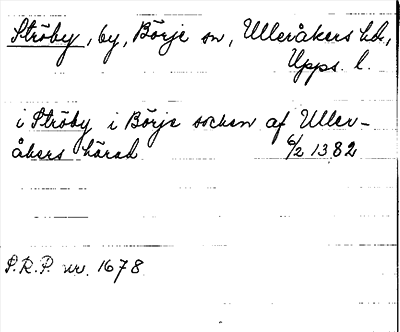 Ströby, by, Börje sn, Ulleråkers hd,
Upps. l.
i Ströby i Börje socken af Uller-
åkers härad 6/2 1382
S.R.P. nr. 1678